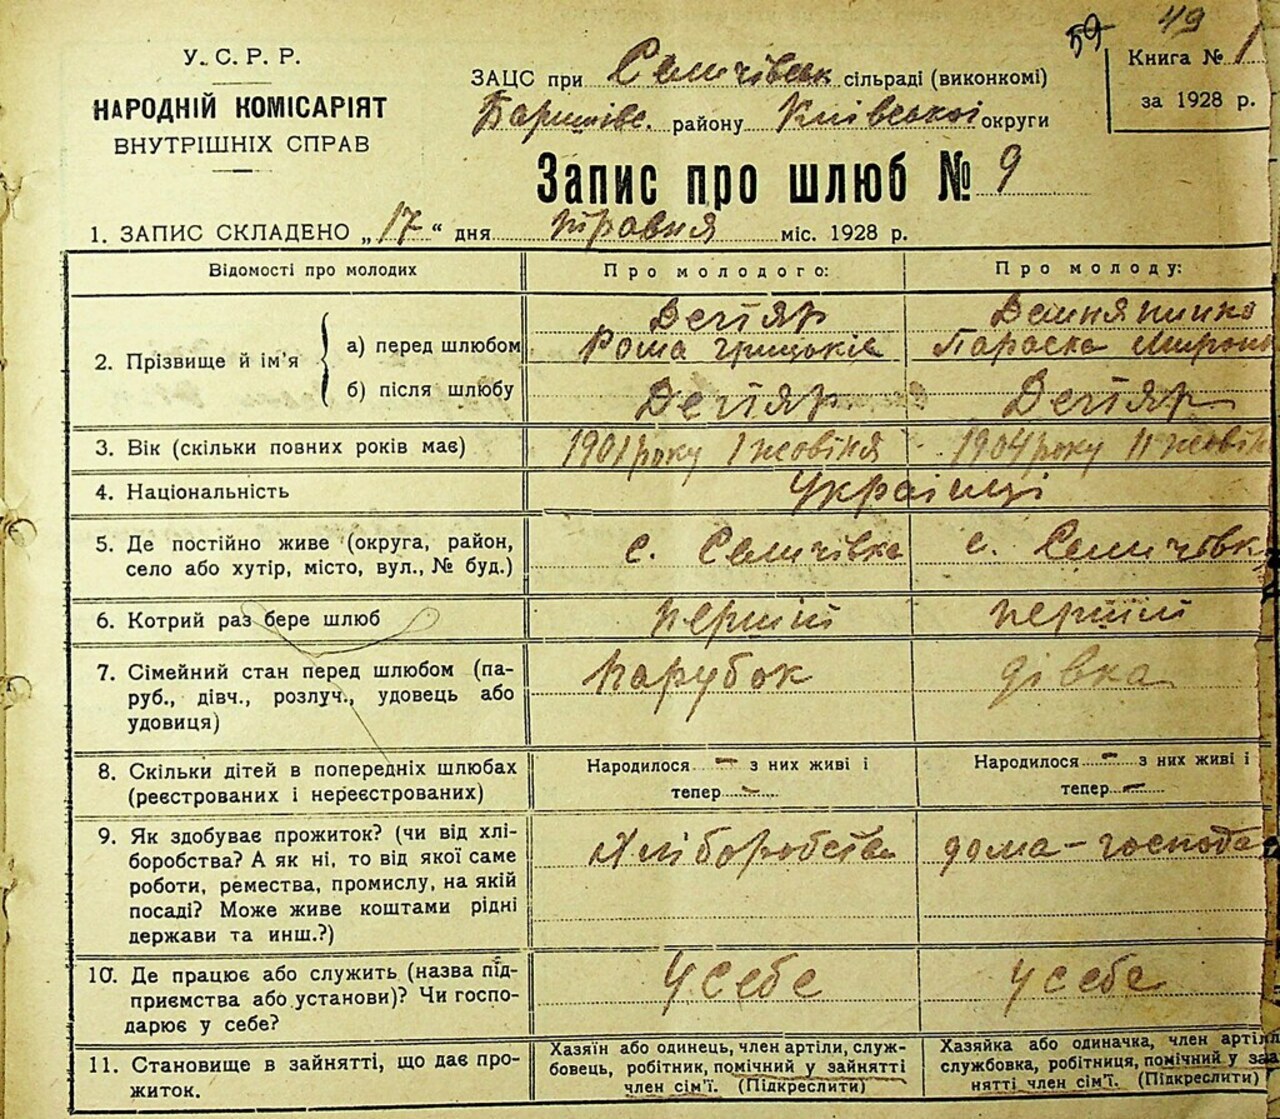 49
59
У. С. Р. Р.
НАРОДНІЙ КОМІСАРІЯТ
ВНУТРІШНІХ СПРАВ
ЗАЦС при Селичівськ сільраді (виконкомі)
Баришівс. району Київської округи
Книга № 1
за 1928 р.
Запис про шлюб № 9
1. ЗАПИС СКЛАДЕНО „17“ дня травня міс. 1928 р.
Відомості про молодих
Про молодого:
Про молоду:
2. Прізвище й ім'я
а) перед шлюбом
Дегтяр
Рома Грицьків
Параска
б) після шлюбу
Дегтяр
Дегтяр
3. Вік (скільки повних років має)
1901 року 1 жовтня
1904 року 11 жовтн
4. Національність
Українці
5. Де постійно живе (округа, район,
село або хутір, місто, вул., № буд.)
с. Селичівка
с. Селичівк
6. Котрий раз бере шлюб
перший
перший
7. Сімейний стан перед шлюбом (па-
руб., дівч., розлуч., удовець або
удовиця)
парубок
дівка
8. Скільки дітей в попередніх шлюбах
(реєстрованих і нереєстрованих)
Народилося - з них живі і
тепер -
Народилося - з них живі і
тепер -
9. Як здобуває прожиток? (чи від хлі-
боробства? А як ні, то від якої саме
роботи, ремества, промислу, на якій
посаді? Може живе коштами рідні
держави та инш.?)
Хліборобство
дома - господа
10. Де працює або служить (назва під-
приємства або установи)? Чи госпо-
дарює у себе?
У себе
У себе
11. Становище в зайнятті, що дає про-
житок.
Хазяїн або одинець, член артіли, служ-
бовець, робітник, помічний у зайнятті
член сім'ї. (Підкреслити)
Хазяйка або одиначка, член артіл
службовка, робітниця, помічний у за
нятті член сім'ї. (Підкреслити)